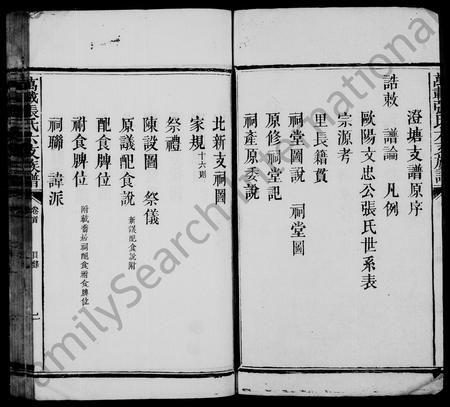 澄塘支譜原序
誥敕 譜論 凡例
歐陽文忠公張氏世系表
宗源考
里長籍貫
祠堂圖說 祠堂圖
原修祠堂記
祠產原委說
北新支祠圖
家規十六則
祭禮
陳設圖 祭儀
原議配食說 新議配食說附
配食牌位
祔食牌位 附載番始祠配食祔食牌位
祠聯 諱派
萬載張氏六支族譜 卷首 目錄
萬載張氏六支族譜
FamilySearch International